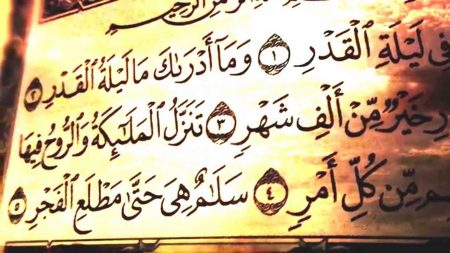 من الرحيم
في ليلة القدر ١ وما أدرىك ما ليلة القدر ٢
ر خير من ألف شهر ٣ تنزل الملىئكة والروح فيها
م من كل أمر ٤ سلىم هي حتى مطلع الفجر ٥